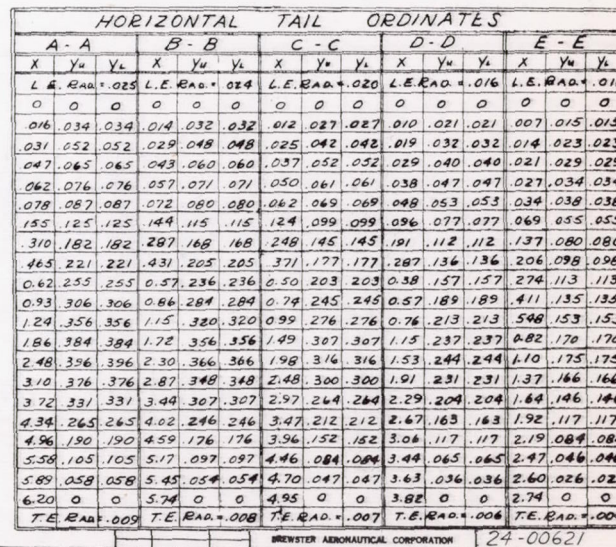 HORIZONTAL TAIL ORDINATES
A - A B - B C - C D - D E - E
X Yu YL X Yu YL X Yu YL X Yu YL X Yu YL
L.E. RAD. = .025 L.E. RAD. = .024 L.E. RAD. = .020 L.E. RAD. = .016 L.E. RAD. = .01
0 0 0 0 0 0 0 0 0 0 0 0 0 0 0
.016 .034 .034 .014 .032 .032 .012 .027 .027 .010 .021 .021 .007 .015 .015
.031 .052 .052 .029 .048 .048 .025 .042 .042 .019 .032 .032 .014 .023 .023
.047 .065 .065 .043 .060 .060 .037 .052 .052 .029 .040 .040 .021 .029 .029
.062 .076 .076 .057 .071 .071 .050 .061 .061 .038 .047 .047 .027 .034 .034
.078 .087 .087 .072 .080 .080 .062 .069 .069 .048 .053 .053 .034 .038 .038
.155 .125 .125 .144 .115 .115 .124 .099 .099 .096 .077 .077 .069 .055 .055
.310 .182 .182 .287 .168 .168 .248 .145 .145 .191 .112 .112 .137 .080 .080
.465 .221 .221 .431 .205 .205 .371 .177 .177 .287 .136 .136 .206 .098 .098
0.62 .255 .255 0.57 .236 .236 0.50 .203 .203 0.38 .157 .157 .274 .113 .113
0.93 .306 .306 0.86 .284 .284 0.74 .245 .245 0.57 .189 .189 .411 .135 .135
1.24 .356 .356 1.15 .320 .320 0.99 .276 .276 0.76 .213 .213 .548 .153 .153
1.86 .384 .384 1.72 .356 .356 1.49 .307 .307 1.15 .237 .237 0.82 .170 .170
2.48 .396 .396 2.30 .366 .366 1.98 .316 .316 1.53 .244 .244 1.10 .175 .175
3.10 .376 .376 2.87 .348 .348 2.48 .300 .300 1.91 .231 .231 1.37 .166 .166
3.72 .331 .331 3.44 .307 .307 2.97 .264 .264 2.29 .204 .204 1.64 .146 .146
4.34 .265 .265 4.02 .246 .246 3.47 .212 .212 2.67 .163 .163 1.92 .117 .117
4.96 .190 .190 4.59 .176 .176 3.96 .152 .152 3.06 .117 .117 2.19 .084 .084
5.58 .105 .105 5.17 .097 .097 4.46 .084 .084 3.44 .065 .065 2.47 .046 .046
5.89 .058 .058 5.45 .054 .054 4.70 .047 .047 3.63 .036 .036 2.60 .026 .02
6.20 0 0 5.74 0 0 4.95 0 0 3.82 0 0 2.74 0 0
T.E. RAD. = .009 T.E. RAD. = .008 T.E. RAD. = .007 T.E. RAD. = .006 T.E. RAD. = .00
BREWSTER AERONAUTICAL CORPORATION 24-00621